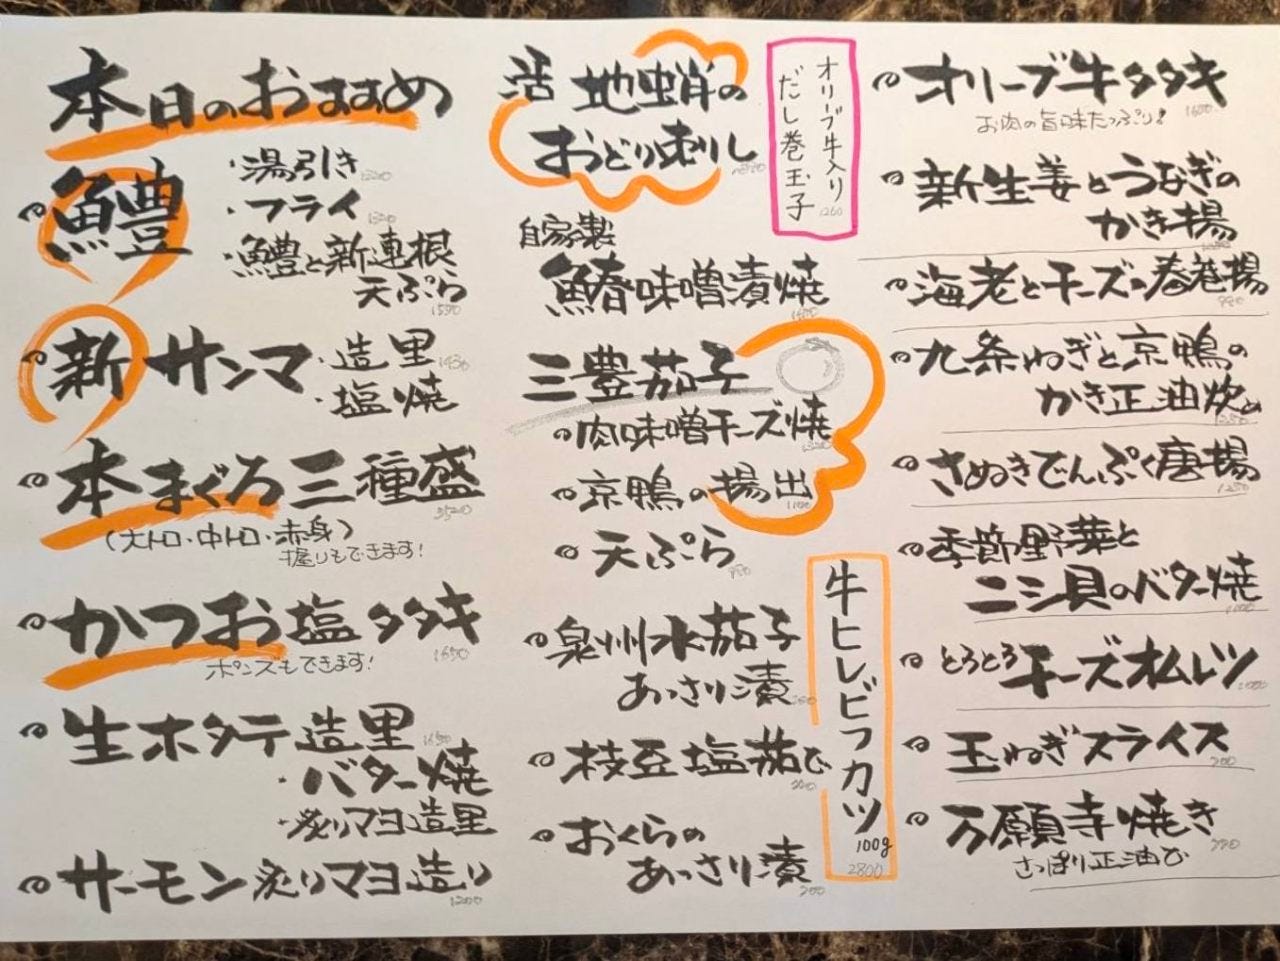 本日のおすすめ
鱧
・湯引き
・フライ
・鱧と新連根
天ぷら
1530
新サンマ・造里
・塩焼
本まぐろ三種盛
(大トロ・中トロ・赤身)
握りもできます!
かつお塩タタキ
1650
ポンスもできます!
生ホタテ造里
1650
・バター焼
・炙りマヨ造里
サーモン炙りマヨ造り
1200
活 地蛸の
おどり刺し
オリーブ牛入り
だし巻玉子
自家製
鰆味噌漬焼
三豊茄子
肉味噌チーズ焼
京鴨の揚出
1100
天ぷら
泉州水茄子
あっさり漬
枝豆塩茹で
おくらの
あっさり漬
牛ヒレビフカツ
100g
2800
オリーブ牛タタキ
お肉の旨味たっぷり!
新生姜とうなぎの
かき揚
海老とチーズの春巻揚
九条ねぎと京鴨の
かき正油炊め
さぬきでんぷく唐揚
季節野菜と
ニシ貝のバター焼
とろとろチーズオムレツ
玉ねぎスライス
万願寺焼き
さっぱり正油で